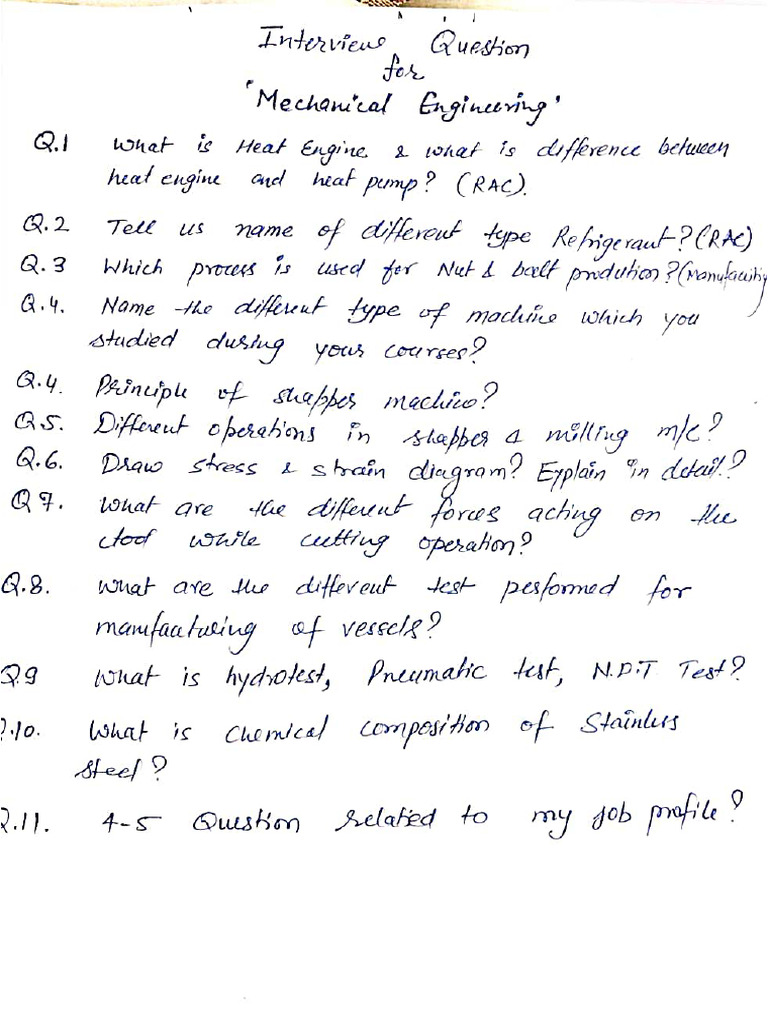 Interview Question
for
'Mechanical Engineering'
Q.1 What is Heat Engine & what is difference between
heat engine and heat pump? (RAC).
Q.2 Tell us name of different type Refrigerant? (RAC)
Q.3 Which process is used for Nut & bolt prodution? (Manufacuting
Q.4. Name the different type of machine which you
studied during your courses?
Q.4. Principle of shapper machine?
Q.5. Different operations in shapper & milling m/c?
Q.6. Draw stress & strain diagram? Explain in detail?
Q7. What are the different forces acting on the
while cutting operation?
Q.8. What are the different test performed for
manufacturing of vessels?
Q.9 What is hydrotest, Pneumatic test, N.D.T Test?
Q.10. What is chemical composition of Stainless
steel?
Q.11. 4-5 Question related to my job profile?